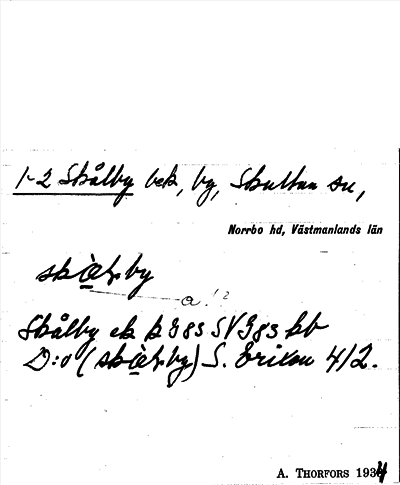 1-2 Skålby bek, by, Skultuna sn,
Norrbo hd, Västmanlands län
by
a ! ?
Skålby ek J 983 SV G 83 kb
D:o ( by) S. Erixon 4/2.
A. THORFORS 1934